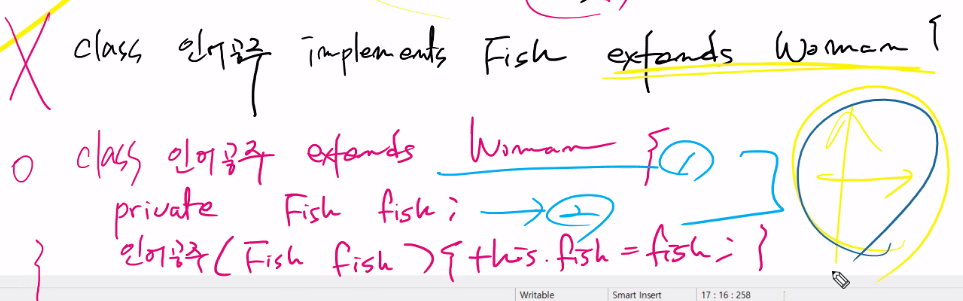 X class 인어공주 implements Fish extends Woman {
O class 인어공주 extends Woman { ①
private Fish fish; → ②
인어공주(Fish fish){ this.fish = fish; }
}
Writable Smart Insert 17 : 16 : 258